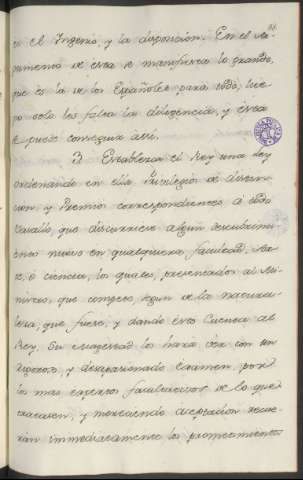 es el Ingenio, y la disposicion. En el Su-
premento de esta se manifiesta lo grande,
que es la de los Españoles para todo, que
solo les falta la diligencia, y esta
se puede conseguir assi.
3. Establezca el Rey una Ley
ordenando en ella Privilegio de distin-
cion, y Premio correspondiente à todo
Vasallo, que discurriere algun descubrimi-
ento nuevo en qualquiera facultad, Ar-
te, ó ciencia, los quales, presentados al Mi-
nistro, que compete, segun de la natura-
leza, que fuere, y dando esto Cuenta al
Rey. Su Magestad lo hara ver con un
rigoroso, y desapasionado examen, por
los mas expertos facultativos de lo que
tratasen, y mereciendo aceptacion
immediatamente los prometimientos